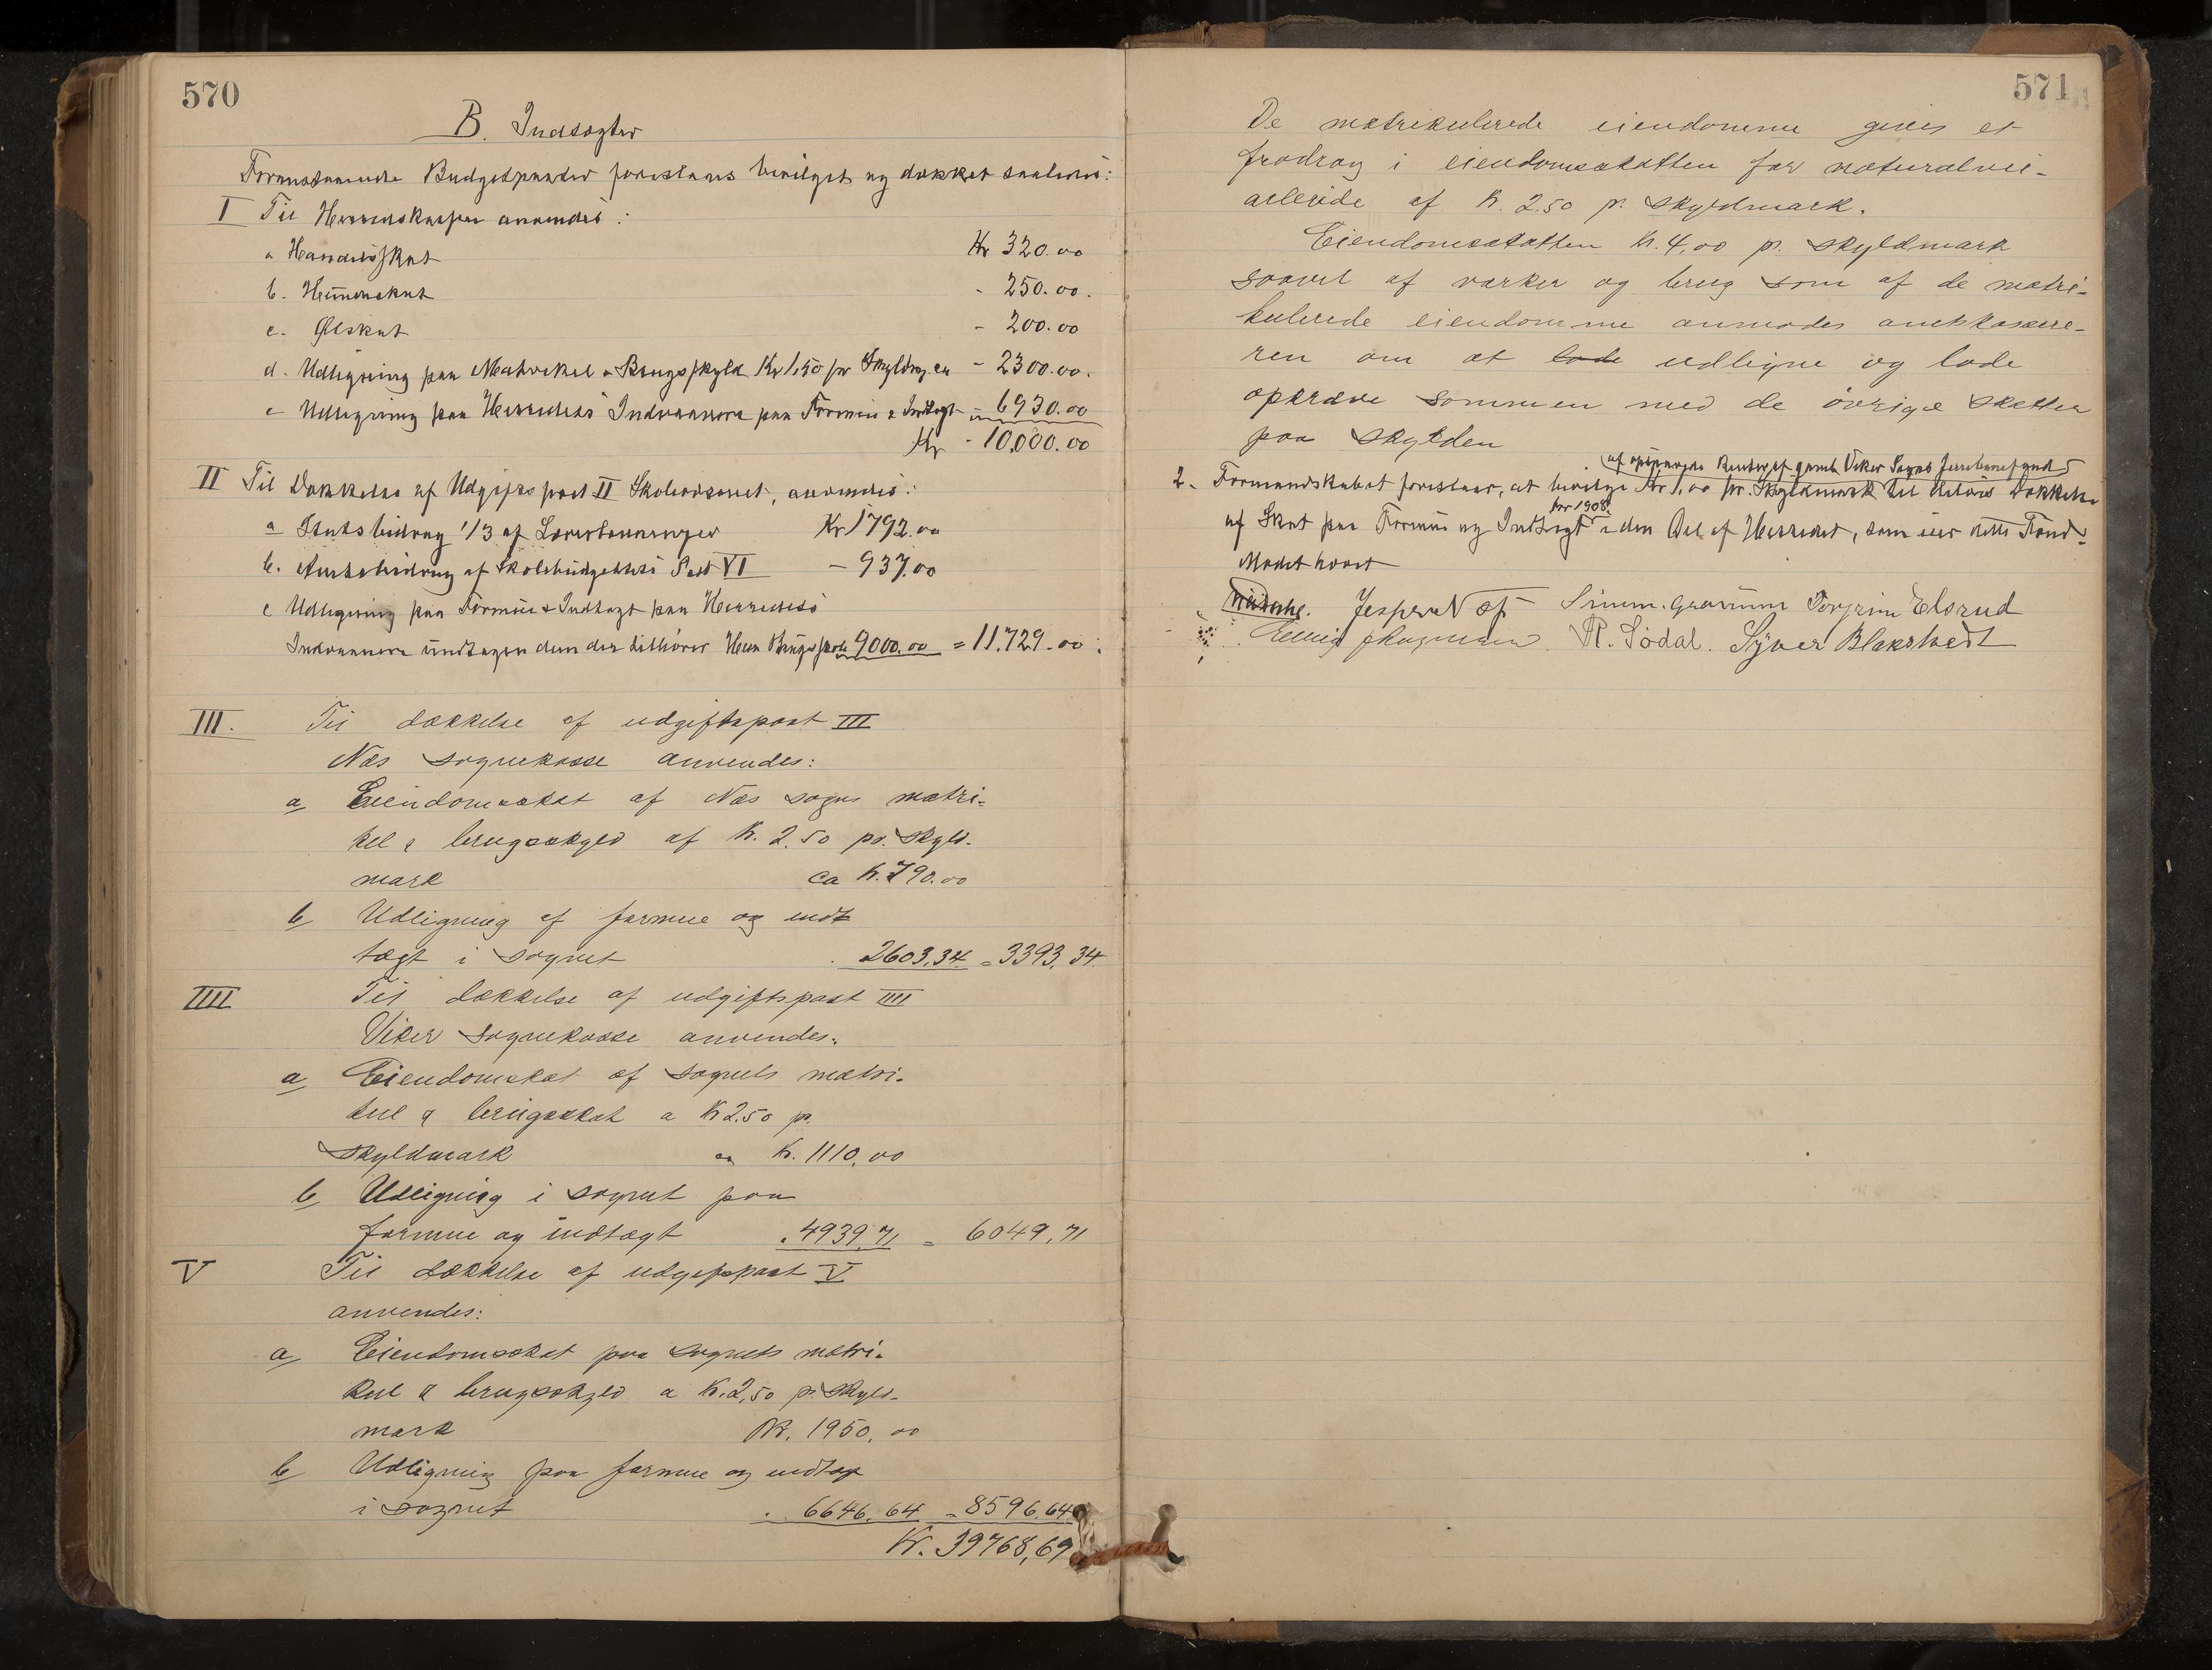 570
B. Indtægter
Foranstaaende Budgetposter foreslaaes bevilget og dækket saaledes:
I Til Herredskassen anvendes:
a Handelsskat Kr 320.00
b. - 250.00.
c. Ølskat - 200.00
d. Udligning paa Matrikel & Brugsskyld Kr 1,50 pr Skyldm. ca - 2300.00.
e Udligning paa Herredets Indvaanere paa Formue & Indtægt - 6930.00
Kr - 10,000.00
II Til Dækkelse af Udgiftspost II Skolevæsenet, anvendes:
a Statsbidrag 1/3 af Lærerlønninger Kr 1792.00
b. Amtsbidrag af Skolebudgettets Post VI - 937.00
c Udligning paa Formue & Indtægt paa Herredets
Indvaanere undtagen dem der tilhører 9000.00 = 11.729.00:
III. Til dækkelse af udgiftspost III
Næs sognekasse anvendes:
a Eiendomsskat af Næs sogns matri-
kel & brugsskyld af K. 2.50 pr. skyld-
mark ca K. 790.00
b Udligning af formue og indt
tægt i sognet . 2603,34 = 3393,34
IIII Til dækkelse af udgiftspost IIII
Viker sognekasse anvendes:
a Eiendomskat af sognets matri-
kul & brugsskat a K 2.50 p.
skyldmark ca K. 1110,00
b Udligning i sognet paa
formue og indtægt . 4939,71 = 6049,71
V Til dækkelse af udgiftspost V
anvendes:
a Eiendomsskat paa sognets matri-
kul & brugsskyld a K. 2,50 p. skyld-
mark Kr. 1950,00
b Udligning paa formue og indtægt
i sognet . 6646,64 = 8596,64
Kr. 39768,69
571
De matrikulerede eiendomme gives et
fradrag i eiendomsskatten for naturalvei-
arbeide af K. 2.50 p. skyldmark.
Eiendomsskatten K. 4,00 p. skyldmark
saavel af værker og brug som af de matri-
kulerede eiendomme anmodes amtskassere-
ren om at lade udligne og lade
opkræve sommen med de øvrige skatter
paa skylden
af opsparede Renter af gamle Viker Sogns Jernbanefond
2. Formandskabet foreslaar, at bevilge Kr 1,00 pr. Skyldmark til delvis Dækkelse
for 1908
af Skat paa Formue og Indtægt i den Del af Herredet, som eier dette Fond.
Mødet hævet
Simm. Gravrum Torgrim Elsrud
R. Sødal. Syver Blakstvedt